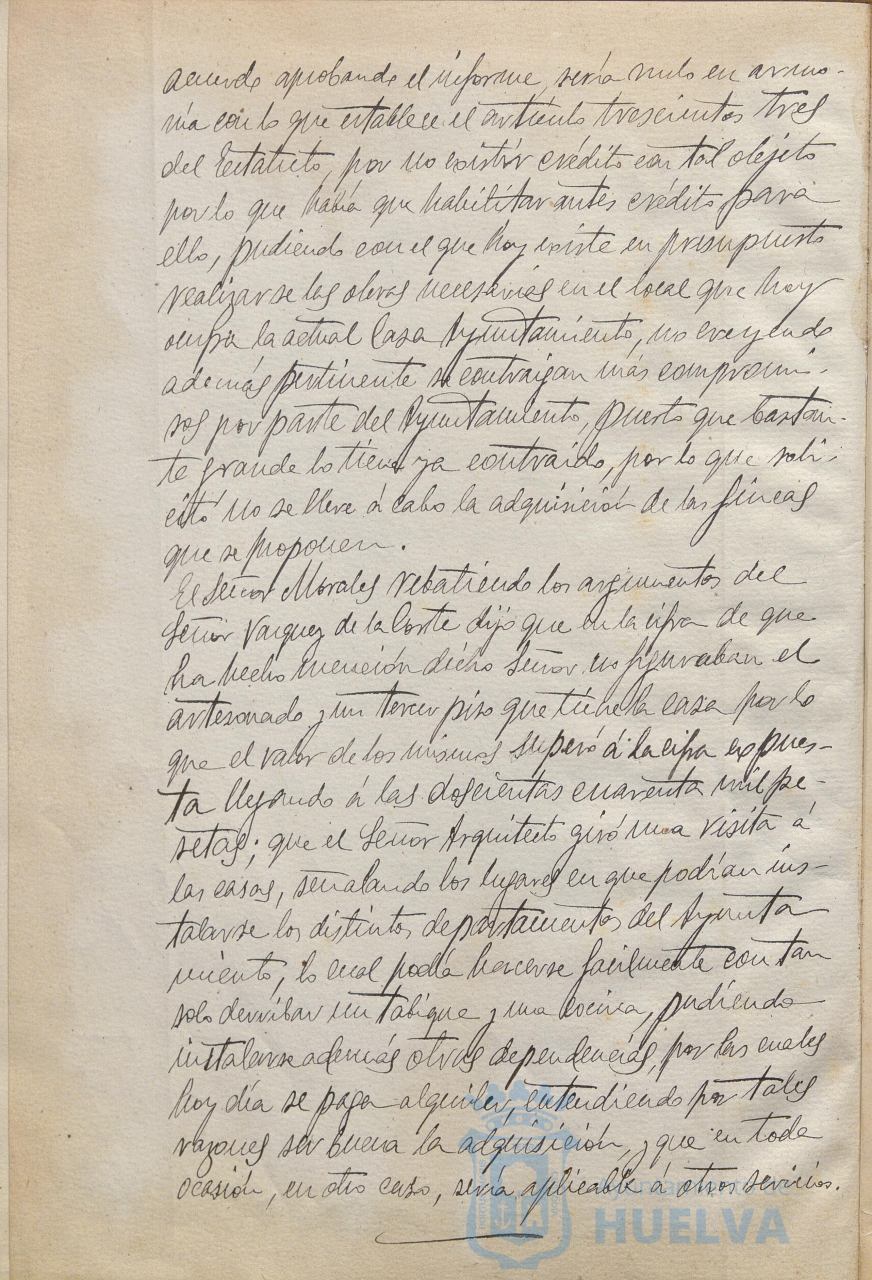 acuerdo aprobando el informe, sería nulo en armo-
nía con lo que establece el artículo trescientos tres
del Estatuto, por no existir crédito con tal objeto
por lo que había que habilitar antes crédito para
ello, pudiendo con el que hoy existe en presupuesto
realizarse las obras necesarias en el local que hoy
ocupa la actual Casa Ayuntamiento, no creyendo
además pertinente se contraigan más compromi-
sos por parte del Ayuntamiento, puesto que bastan-
te grande lo tiene ya contraído, por lo que soli-
citó no se lleve á cabo la adquisición de las fincas
que se proponen.
El Señor Morales rebatiendo los argumentos del
Señor Vazquez de la Corte dijo que en la cifra de que
ha hecho mención dicho Señor no figuraban el
artesonado y un tercer piso que tiene la casa por lo
que el valor de los mismos superó á la cifra expues-
ta llegando á las doscientas cuarenta mil pe-
setas; que el Señor Arquitecto giró una visita á
las casas, señalando los lugares en que podrían ins-
talarse los distintos departamentos del Ayunta
miento, lo cual podía hacerse facilmente con tan
solo derribar un tabique y una cocina, pudiendo
instalarse además otras dependencias, por las cuales
hoy día se paga alquiler, entendiendo por tales
razones ser buena la adquisición, y que en toda
ocasión, en otro caso, sería aplicable á otros servicios.
Ayuntamiento de
HUELVA